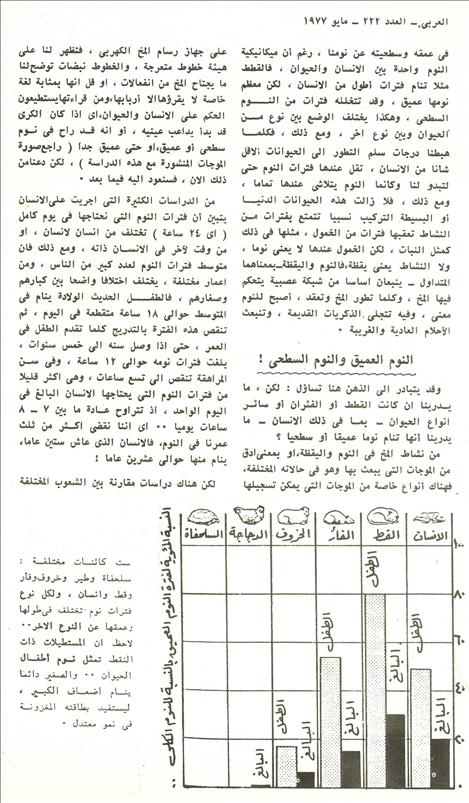 العربى ـ العدد ٢٢٢ ـ مايو ١٩٧٧
فى عمقه وسطحيته عن نومنا ، رغم أن ميكانيكية
النوم واحدة بين الانسان والحيوان ، فالقطط
مثلا تنام فترات أطول من الانسان ، لكن معظم
نومها عميق ، وقد تتخلله فترات من النوم
السطحى ، وهكذا يختلف الوضع بين نوع من
الحيوان وبين نوع آخر ، ومع ذلك ، فكلما
هبطنا درجات سلم التطور الى الحيوانات الاقل
شانا من الانسان ، تقل عندها فترات النوم حتى
لتبدو لنا وكانما النوم يتلاشى عندها تماما ،
ومع ذلك ، فلا زالت هذه الحيوانات الدنيا
أو البسيطة التركيب نسبيا تتمتع بفترات من
النشاط تعقبها فترات من الخمول ، مثلها فى ذلك
كمثل النبات ، لكن الخمول عندها لا يعنى نوما ،
ولا النشاط يعنى يقظة ، فالنوم واليقظة ـ بمعناهما
المتداول ـ ينبعان اساسا من شبكة عصبية يتحكم
فيها المخ ، وكلما تطور المخ وتعقد ، أصبح للنوم
معنى ، وفيه تتجلى الذكريات القديمة ، وتنبعث
الأحلام العادية والغريبة .
النوم العميق والنوم السطحى !
وقد يتبادر الى الذهن هنا تساؤل : لكن ، ما
يدرينا ان كانت القطط أو الفئران أو سائر
انواع الحيوان ـ بما فى ذلك الانسان ـ ما
يدرينا أنها تنام نوما عميقا أو سطحيا ؟
من نشاط المخ فى النوم واليقظة ، أو بمعنى ادق
من الموجات التى يبعث بها وهو فى حالاته المختلفة ،
فهناك أنواع خاصة من الموجات التى يمكن تسجيلها
على جهاز رسام المخ الكهربى ، فتظهر لنا على
هيئة خطوط متعرجة ، والخطوط نبضات توضح لنا
ما يجتاح المخ من انفعالات ، او قل انها بمثابة لغة
خاصة لا يقرؤها الا أربابها ، ومن قراءتها يستطيعون
الحكم على الانسان والحيوان ، اى اذا كان الكرى
قد بدأ يداعب عينيه ، أو انه قد راح فى نوم
سطحى أو عميق ، أو حتى عميق جدا ( راجع صورة
الموجات المنشورة مع هذه الدراسة ) ، لكن دعنا من
ذلك الان ، فسنعود اليه فيما بعد .
من الدراسات الكثيرة التى اجريت على الانسان
يتبين أن فترات النوم التى نحتاجها فى يوم كامل
( اى ٢٤ ساعة ) تختلف من انسان لانسان ، او
من وقت لآخر فى الانسان ذاته ، ومع ذلك فان
متوسط فترات النوم لعدد كبير من الناس ، ومن
اعمار مختلفة ، يختلف اختلافا واضحا بين كبارهم
وصغارهم ، فالطفل الحديث الولادة ينام فى
المتوسط حوالى ١٨ ساعة متقطعة فى اليوم ، ثم
تنقص هذه الفترة بالتدريج كلما تقدم الطفل فى
العمر ، حتى اذا وصل سنه الى خمس سنوات ،
بلغت فترات نومه حوالى ١٢ ساعة ، وفى سن
المراهقة تنقص الى تسع ساعات ، وهى اكثر قليلا
من فترات النوم التى يحتاجها الانسان البالغ فى
اليوم الواحد ، اذ تتراوح عادة ما بين ٧ ـ ٨
ساعات يوميا ٠٠ اى اننا نقضى اكثر من ثلث
عمرنا فى النوم ، فالانسان الذى عاش ستين عاما ،
ينام منها حوالى عشرين عاما !
لكن هناك دراسات مقارنة بين الشعوب المختلفة
الانسان
القط
الفأر
الخروف
الدجاجة
السلحفاة
١٠٠
٨٠
٦٠
٤٠
٢٠
٠٠
الطفل
البالغ
الطفل
البالغ
الطفل
البالغ
الطفل
البالغ
البالغ
النسبة المئوية لفترة النوم العميق بالنسبة للنوم الكلى
ست كائنات مختلفة :
سلحفاة وطير وخروف وفار
وقط وانسان ، ولكل نوع
فترات نوم تختلف فى طولها
وعمقها عن النوع الاخر ٠٠
لاحظ ان المستطيلات ذات
النقط تمثل نوم أطفال
الحيوان ٠٠ والصغير دائما
ينام أضعاف الكبير ،
ليستفيد بطاقته المخزونة
فى نمو معتدل .